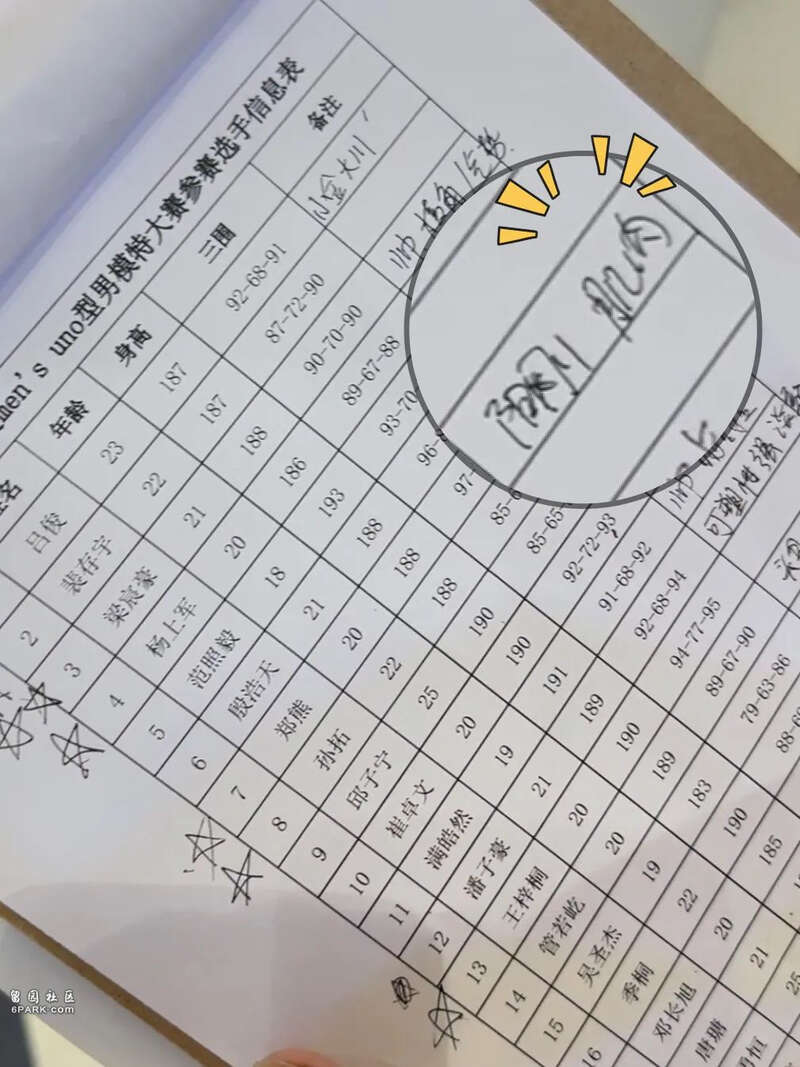 men's uno型男模特大赛参赛选手信息表
名 年龄 身高 三围 备注
吕俊 23 187 92-68-91 小金大川
2 裴存宇 22 187 87-72-90
3 梁宸豪 21 188 90-70-90
4 杨上军 20 186 89-67-88
5 范照毅 18 193 93-70
6 殷浩天 21 188 96-
7 郑熊 20 188 97-
8 孙拓 22 188 85-6
9 邱子宁 25 190 85-65-
10 崔卓文 20 190 92-72-93
11 满皓然 19 191 91-68-92
12 潘子豪 21 189 92-68-94 可塑性强
13 王梓桐 20 190 94-77-95
14 管若屹 20 189 89-67-90
15 吴圣杰 19 183 79-63-86
16 季桐 22 190 88-6
邓长旭 20 185
唐瑭 21
恒 25
阳刚 肌肉
留园社区
6PARK.COM